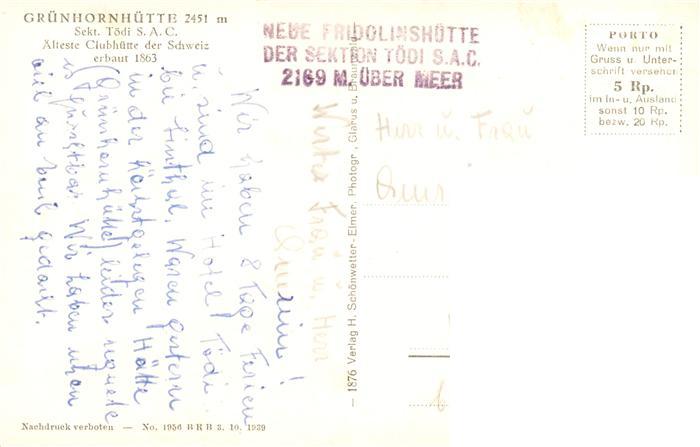 GRÜNHORNHÜTTE 2451 m
Sekt. Tödi S. A. C.
Älteste Clubhütte der Schweiz
erbaut 1863
NEUE FRIDOLINSHÜTTE
DER SEKTION TÖDI S.A.C.
2169 M. ÜBER MEER
PORTO
Wenn nur mit
Gruss u. Unter-
schrift versehen
5 Rp.
im In- u. Ausland
sonst 10 Rp.
bezw. 20 Rp.
Herr u. Frau
Wir haben 8 Tage Ferien
u. sind im Hotel Tödi
bei Linthal. Waren gestern
in der Hütte
(Grünhornhütte) leider regnete
es Wir haben
an gedacht.
Frau u. Herr
— 1876 Verlag H. Schönwetter-Elmer, Photogr., Glarus u. Braunwald
Nachdruck verboten — No. 1956 B R B 3. 10. 1939